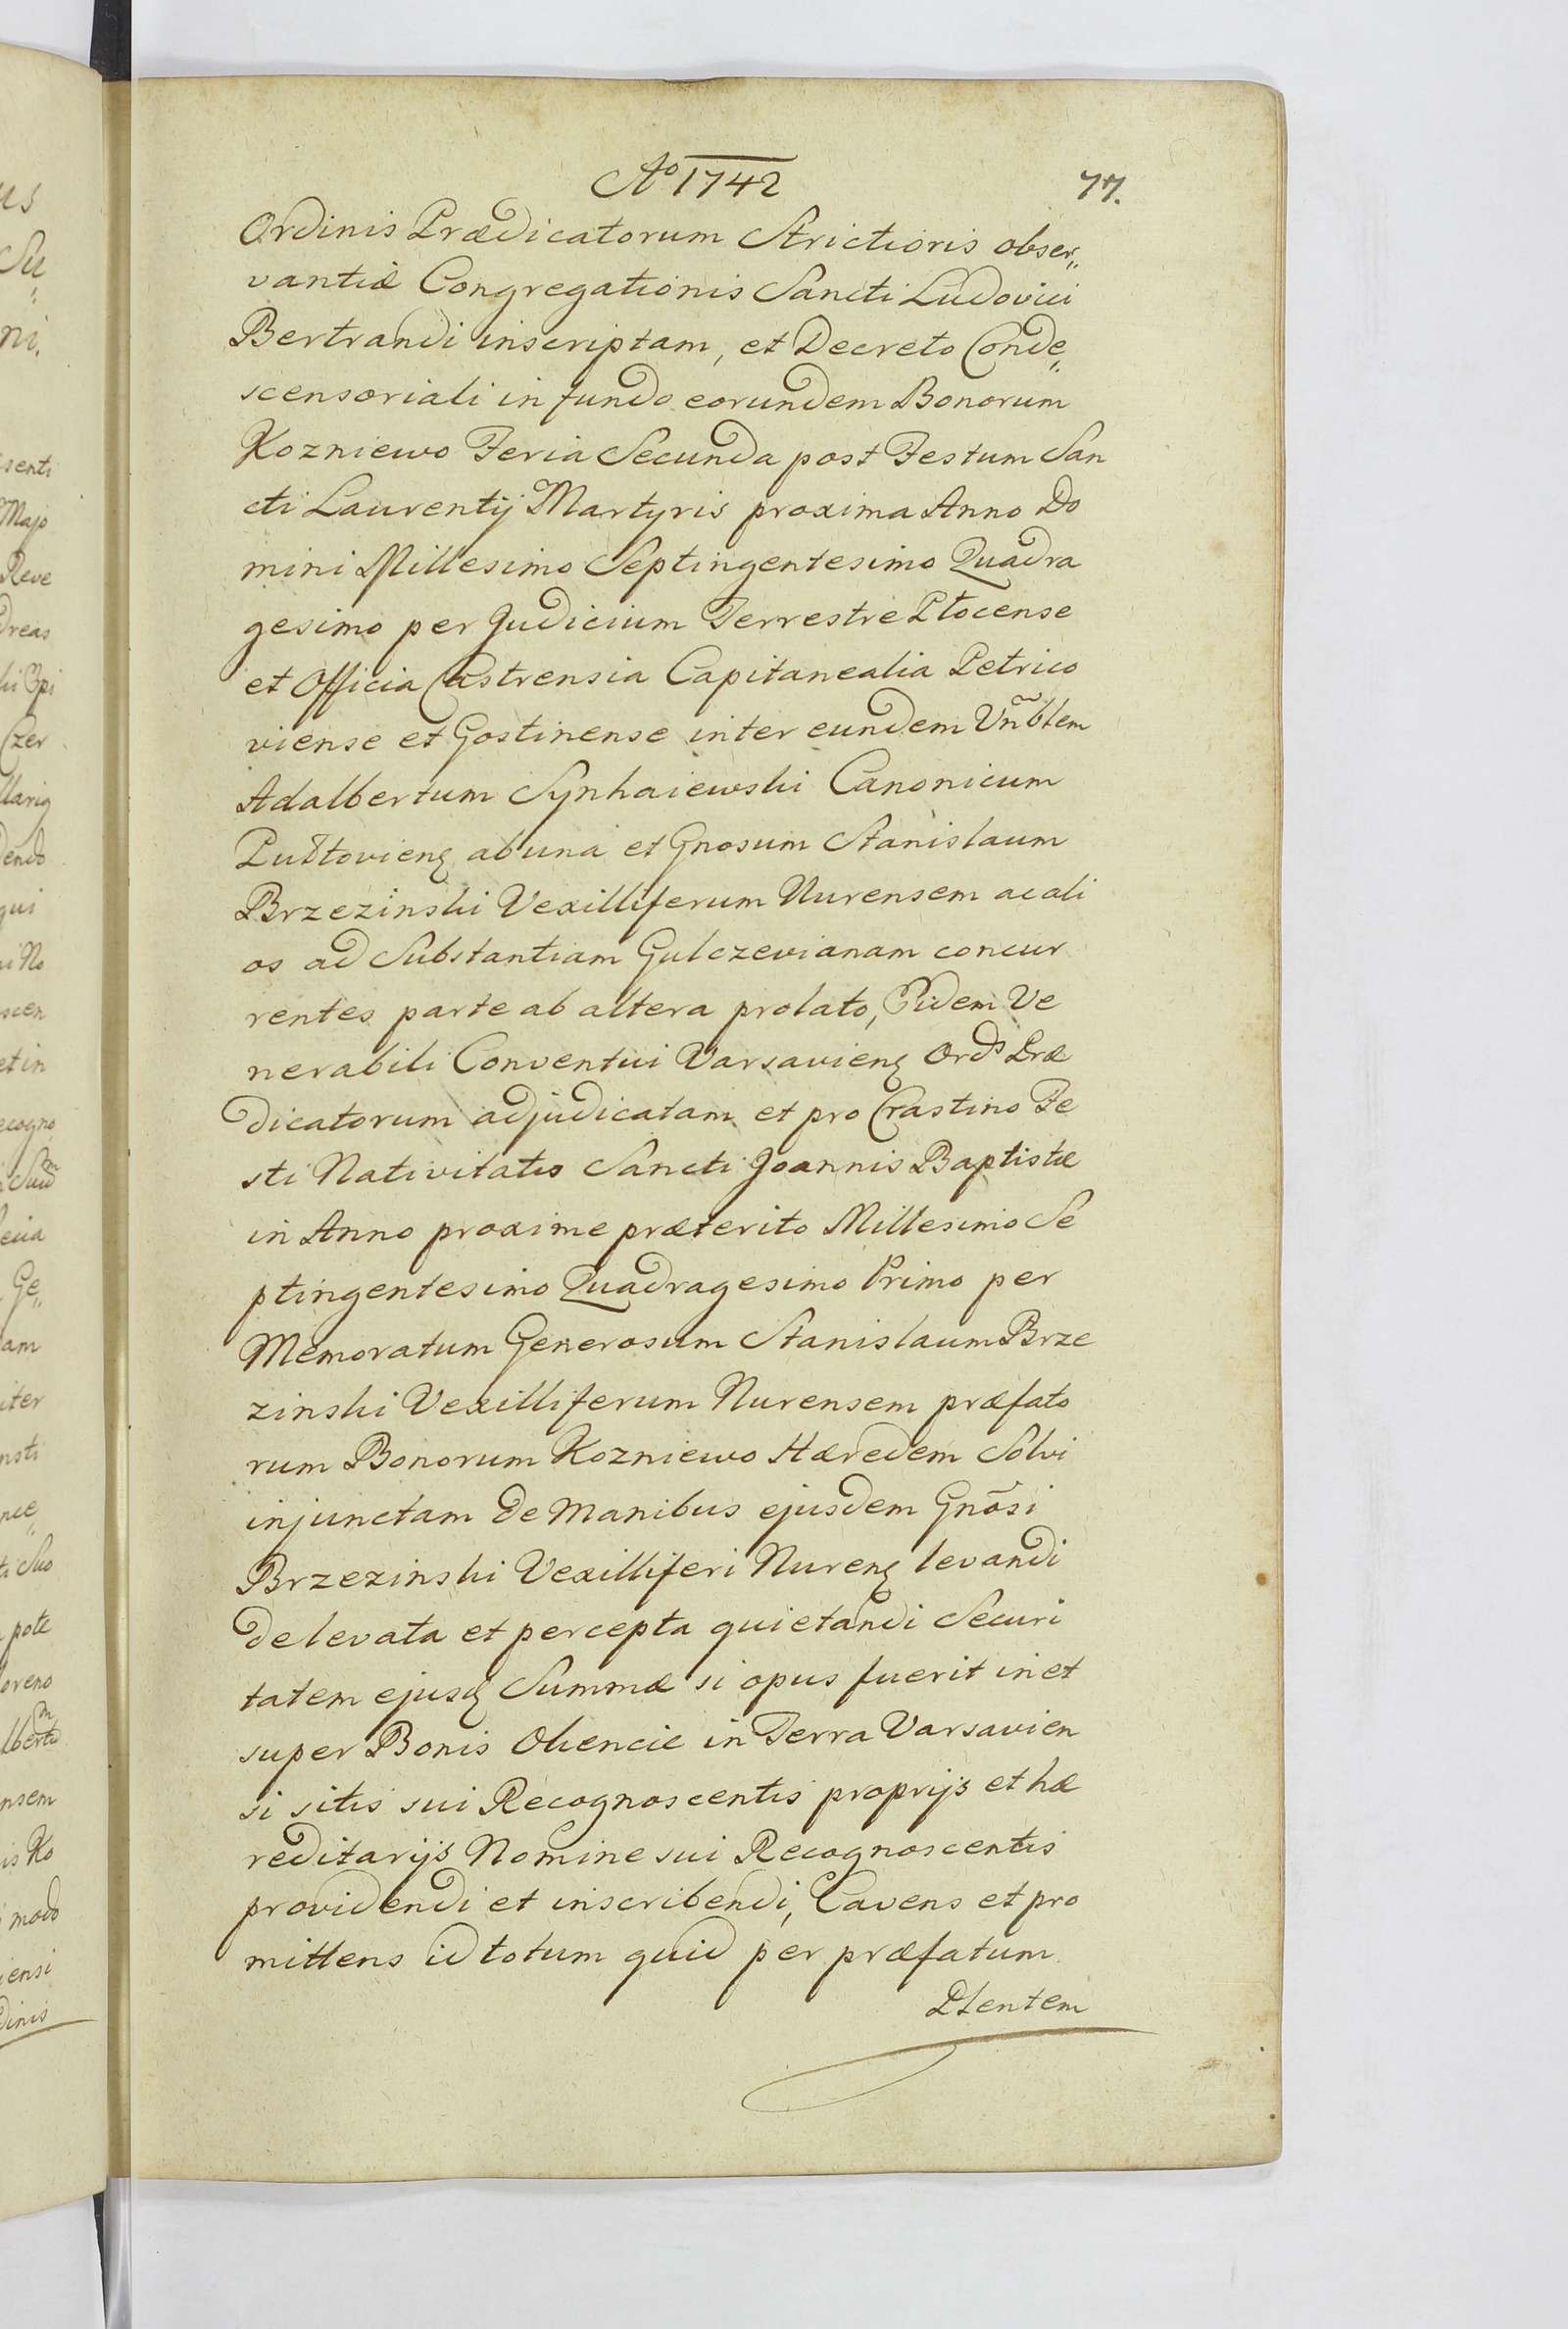 Aº 1742
77.
Ordinis Prædicatorum Strictioris obser„
vantiæ Congregationis Sancti Ludovici
Bertrandi inscriptam, et Decreto Conde„
scensoriali in fundo eorundem Bonorum
Kozniewo Feria Secunda post Festum San
cti Laurentij Martyris proxima Anno Do
mini Millesimo Septingentesimo Quadra
gesimo per Judicium Terrestre Plocense
et Officia Castrensia Capitanealia Petrico
viense et Gostinense inter eundem Vñblem
Adalbertum Canonicum
ab una et Gnosum Stanislaum
Brzezinski Vexilliferum Nurensem ac ali
os ad Substantiam Gulczevianam concur
rentes parte ab altera prolato, Eidem Ve
nerabili Conventui Varsavienq Ordˢ Præ
dicatorum adjudicatam et pro Crastino Fe
sti Nativitatis Sancti Joannis Baptistæ
in Anno proxime præterito Millesimo Se
ptingentesimo Quadragesimo Primo per
Memoratum Generosum Stanislaum Brze
zinski Vexilliferum Nurensem præfato
rum Bonorum Kozniewo Hæredem Solvi
injunctam de Manibus ejusdem Gnõsi
Brzezinski Vexilliferi Nurenq levandi
de levata et percepta quietandi Securi
tatem ejusq Summæ si opus fuerit in et
super Bonis Okencie in Terra Varsavien
si sitis sui Recognoscentis proprijs et hæ
reditarijs Nomine sui Recognoscentis
providendi et inscribendi, Cavens et pro
mittens id totum quid per præfatum
Plentem